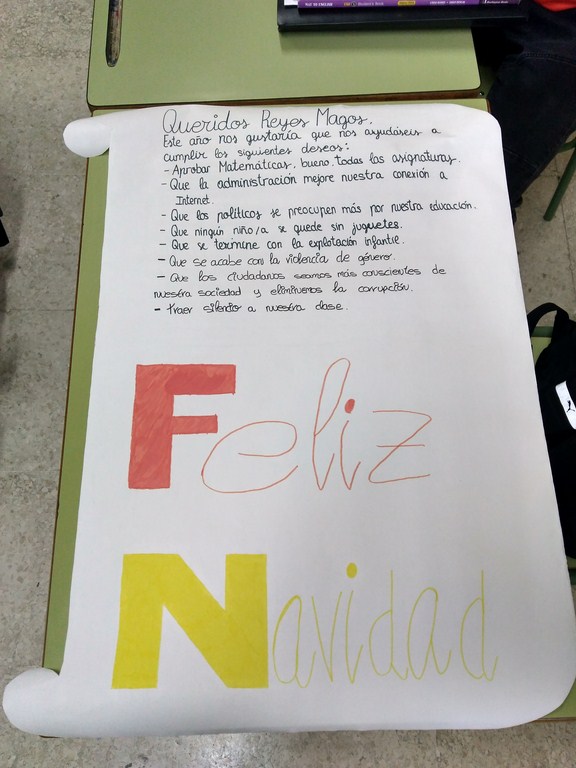 Queridos Reyes Magos.
Este año nos gustaría que nos ayudáseis a
cumplir los siguientes deseos:
- Aprobar Matemáticas, bueno, todas las asignaturas.
- Que la administración mejore nuestra conexión a
Internet.
- Que los políticos se preocupen más por nuestra educación.
- Que ningún niño/a se quede sin juguetes.
- Que se termine con la explotación infantil.
- Que se acabe con la violencia de género.
- Que los ciudadanos seamos más conscientes de
nuestra sociedad y eliminemos la corrupción.
- traer silencio a nuestra clase.
Feliz
Navidad